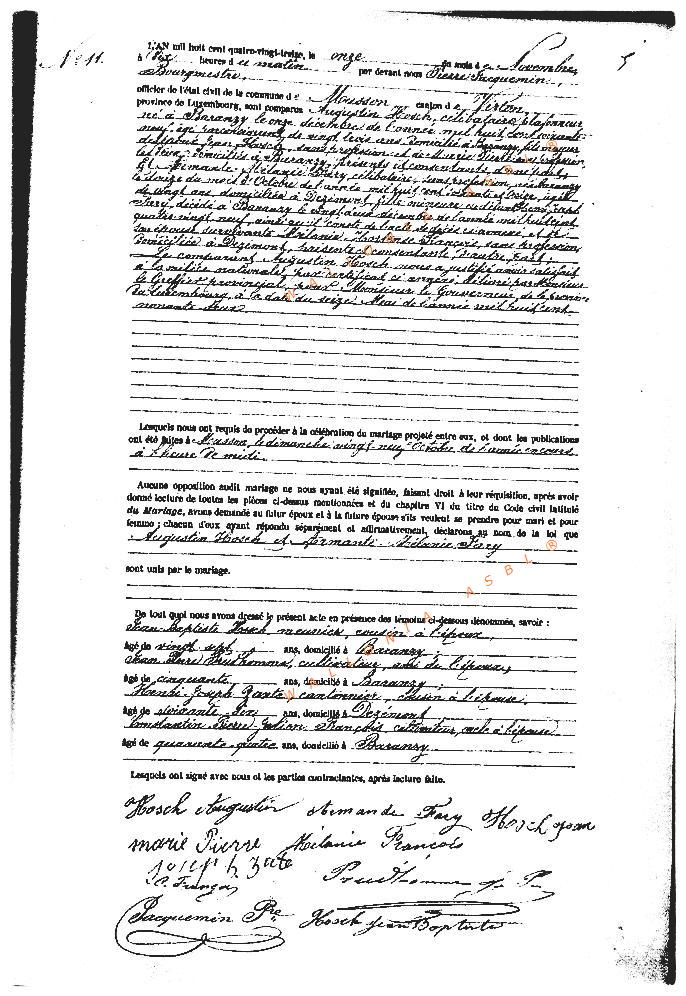 Nº 11.
5
L'AN mil huit cent quatre-vingt-treize, le onze du mois de Novembre,
à dix heures du matin par devant nous Pierre Jacquemin,
Bourgmestre,
officier de l'état civil de la commune de Musson canton de Virton,
province de Luxembourg, sont comparus Augustin Hosch, célibataire, plafonneur
né à Baranzy le onze décembre de l'année mil huit cent soixante-
neuf, âgé de vingt trois ans, domicilié à Baranzy, fils majeur
de Jean Hosch, sans profession et de Marie Pierre, sans profession
les deux domiciliés à Baranzy, présents et consentants, d'une part;
Et Armande Mélanie Fary, célibataire, sans profession, née à Baranzy
le douze du mois d'Octobre de l'année mil huit cent soixante et treize, âgée
de vingt ans, domiciliée à Dezimont, fille mineure
Fary, décédé à Baranzy le vingt deux décembre de l'année mil huit cent
quatre-vingt-neuf, ainsi qu'il conste de l'acte de décès ci annexé, et de
son épouse survivante Mélanie Hortense François, sans profession,
domiciliée à Dezimont, présente et consentante, d'autre part;
Le comparant Augustin Hosch nous a justifié avoir satisfait
à la milice nationale, par certificat ci annexé, délivré par Monsieur
le Greffier provincial, pour Monsieur le Gouverneur de la province
du Luxembourg, à la date du seize Mai de l'année mil huit cent
nonante deux
Lesquels nous ont requis de procéder à la célébration du mariage projeté entre eux, et dont les publications
ont été faites à Musson, le dimanche vingt-neuf Octobre de l'année en cours
à l'heure de midi.
Aucune opposition audit mariage ne nous ayant été signifiée, faisant droit à leur réquisition, après avoir
donné lecture de toutes les pièces ci-dessus mentionnées et du chapitre VI du titre du Code civil intitulé
du Mariage, avons demandé au futur époux et à la future épouse s'ils veulent se prendre pour mari et pour
femme; chacun d'eux ayant répondu séparément et affirmativement, déclarons au nom de la loi que
Augustin Hosch et Armande Mélanie Fary
sont unis par le mariage.
De tout quoi nous avons dressé le présent acte en présence des témoins ci-dessous dénommés, savoir :
Jean Baptiste Hosch, meunier, cousin à l'époux,
âgé de vingt sept ans, domicilié à Baranzy;
Jean Pierre Prudhomme, cultivateur, ami de l'époux,
âgé de cinquante ans, domicilié à Baranzy;
Henri Joseph Zante, cantonnier, cousin à l'épouse,
âgé de soixante six ans, domicilié à Dezimont
Constantin Pierre Julien François, cultivateur, oncle à l'épouse
âgé de quarante quatre ans, domicilié à Baranzy.
Lesquels ont signé avec nous et les parties contractantes, après lecture faite.
Hosch Augustin Armande Fary Hosch Jean
marie Pierre Mélanie François
C. François Prudhomme
Jacquemin Pre Hosch Jean Baptiste
ASBL ®